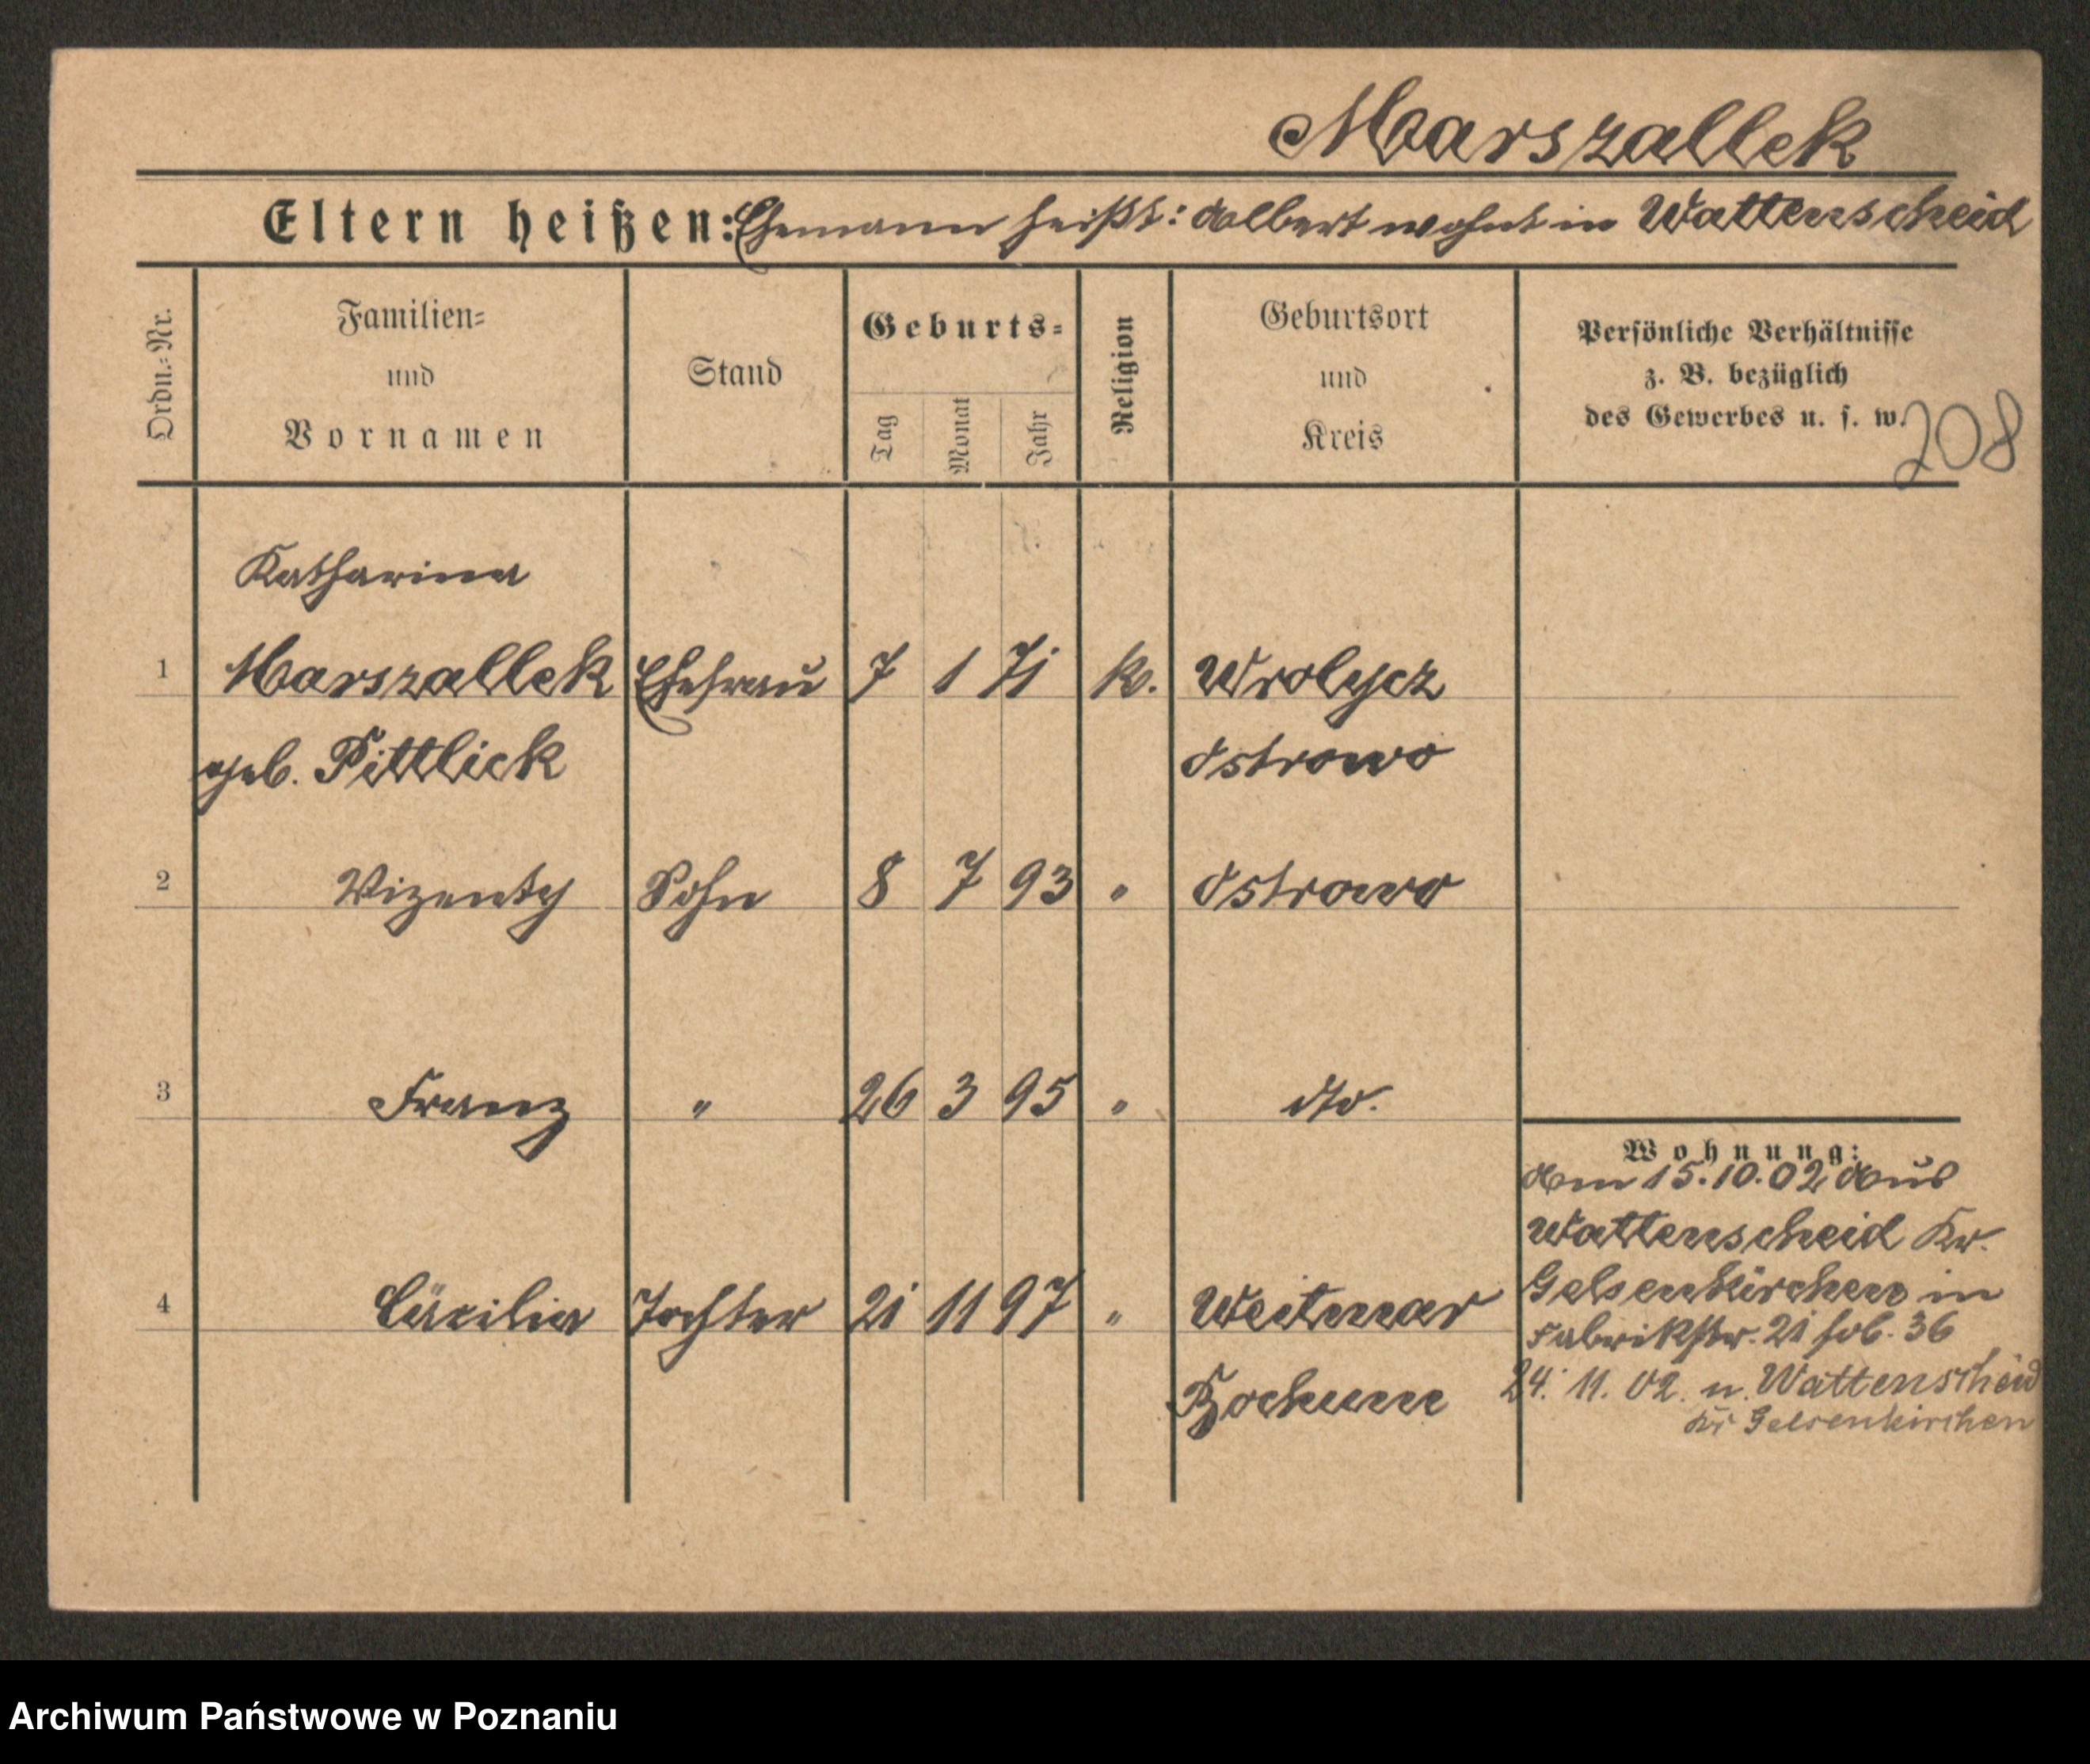 Marszallek
Eltern heißen: Ehemann heißt: Albert wohnt in Wattenscheid
Ordn.-Nr.
Familien-
und
Vornamen
Stand
Geburts-
Tag
Monat
Jahr
Religion
Geburtsort
und
Kreis
Persönliche Verhältnisse
z. B. bezüglich
des Gewerbes u. s. w.
208
Katharina
1 Marszallek Ehefrau 7 1 71 k. Wrolycz
geb. Pittlick Ostrowo
2 Vizenty Sohn 8 7 93 " Ostrowo
3 Franz " 26 3 95 " dto.
Wohnung:
Am 15.10.02 Aus
Wattenscheid Kr.
Gelsenkirchen in
4 Cäcilia Tochter 21 11 97 " Weitmar
Fabrikstr. 21 36
Bochum
24. 11. 02. n. Wattenscheid
Kr Gelsenkirchen
Archiwum Państwowe w Poznaniu